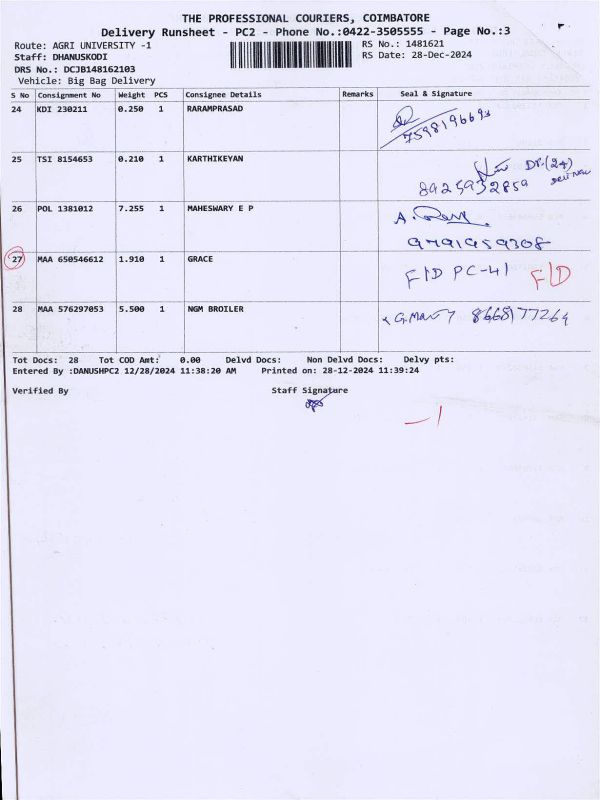 THE PROFESSIONAL COURIERS, COIMBATORE
Delivery Runsheet - PC2 - Phone No.:0422-3505555 - Page No.:3
Route: AGRI UNIVERSITY -1 RS No.: 1481621
Staff: DHANUSKODI RS Date: 28-Dec-2024
DRS No.: DCJB148162103
Vehicle: Big Bag Delivery
S No Consignment No Weight PCS Consignee Details Remarks Seal & Signature
24 KDI 230211 0.250 1 RARAMPRASAD
7598196693
25 TSI 8154653 0.210 1 KARTHIKEYAN
8925932859
26 POL 1381012 7.255 1 MAHESWARY E P
9791959308
27 MAA 650546612 1.910 1 GRACE
F/D PC-41 F/D
28 MAA 576297053 5.500 1 NGM BROILER
8668177264
Tot Docs: 28 Tot COD Amt: 0.00 Delvd Docs: Non Delvd Docs: Delvy pts:
Entered By :DANUSHPC2 12/28/2024 11:38:20 AM Printed on: 28-12-2024 11:39:24
Verified By Staff Signature
-1